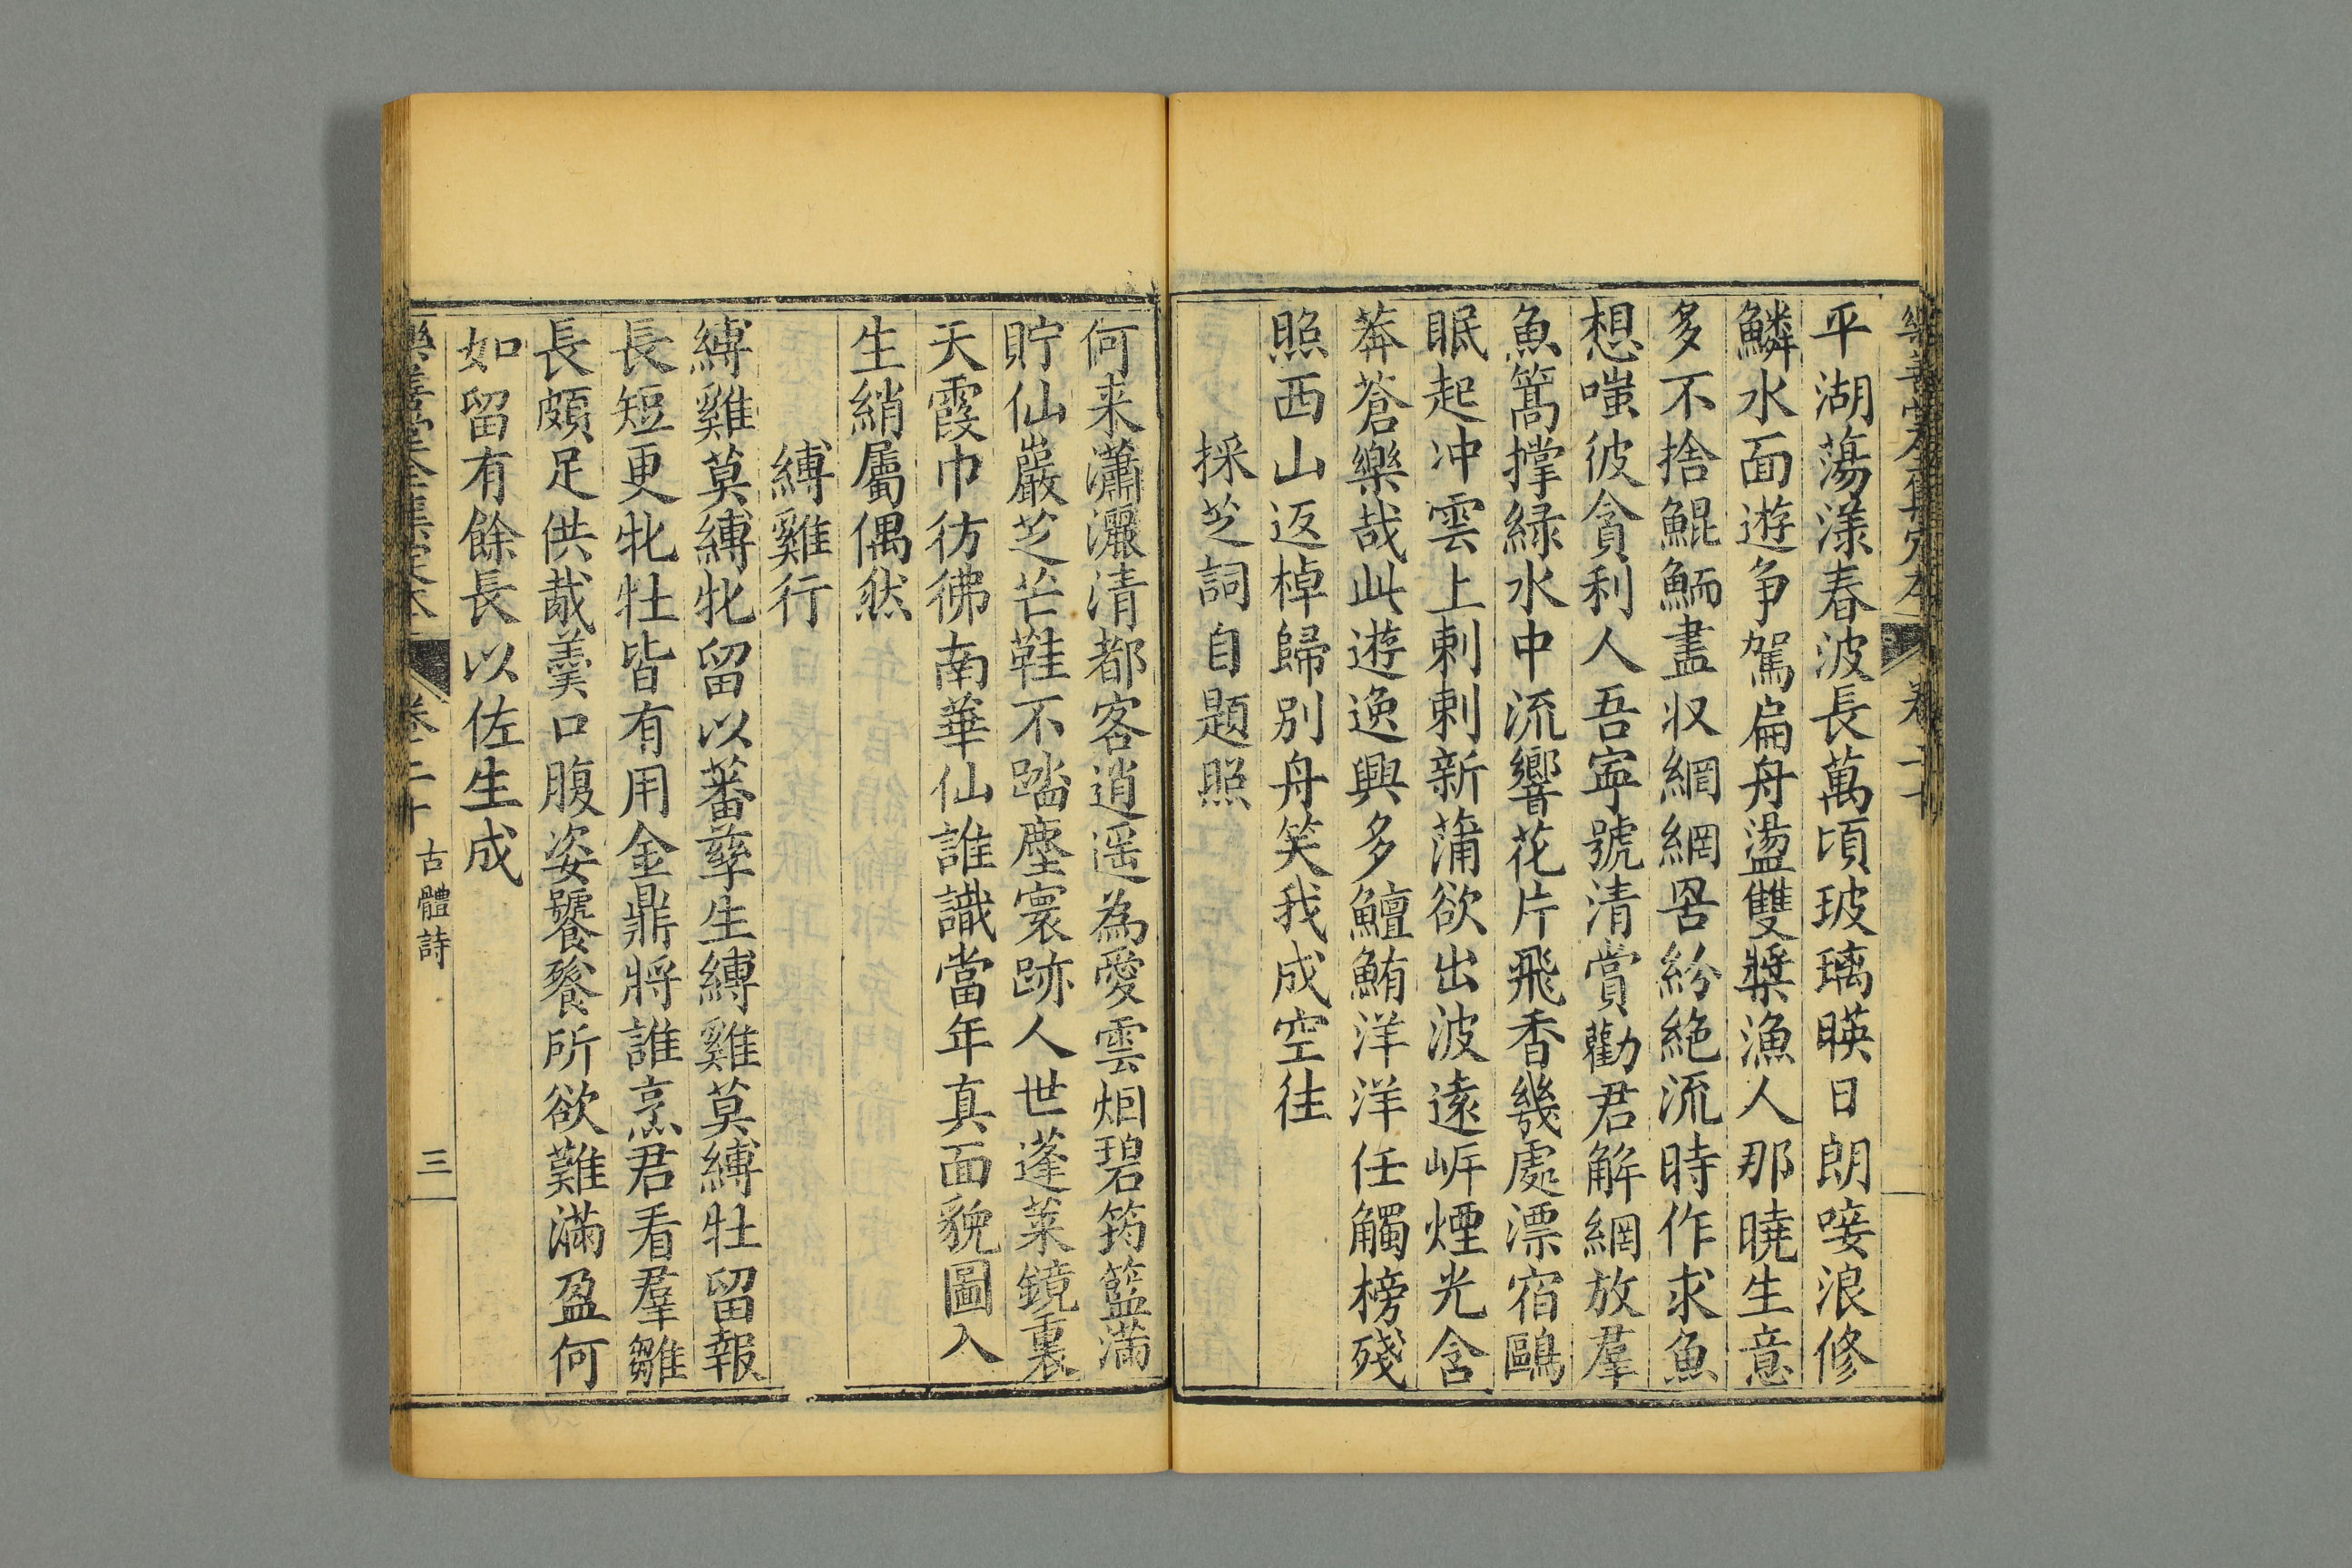 樂善堂全集定本
卷二十
平湖蕩漾春波長萬頃玻璃暎日朗唼浪修
鱗水面遊争駕扁舟盪雙槳漁人那曉生意
多不捨鯤鮞盡収網網罟紛絶流時作求魚
想嗤彼貪利人吾寧號清賞勸君解網放羣
魚篙撑緑水中流響花片飛香幾處漂宿鷗
眠起冲雲上剌剌新蒲欲出波遠㟁煙光含
莽蒼樂哉此遊逸興多鱣鮪洋洋任觸榜殘
照西山返棹歸別舟笑我成空往
採芝詞自題照
何来瀟灑清都客逍遥為愛雲烟碧筠籃滿
貯仙巖芝芒鞋不踏塵寰跡人世蓬莱鏡裏
天霞巾彷彿南華仙誰識當年真面貌圖入
生綃屬偶然
縛雞行
縛雞莫縛牝留以蕃孳生縛雞莫縛牡留報
長短更牝牡皆有用金鼎將誰烹君看羣雛
長頗足供胾羹口腹姿饕餮所欲難滿盈何
如留有餘長以佐生成
樂善堂全集定本
卷二十
古體詩
三